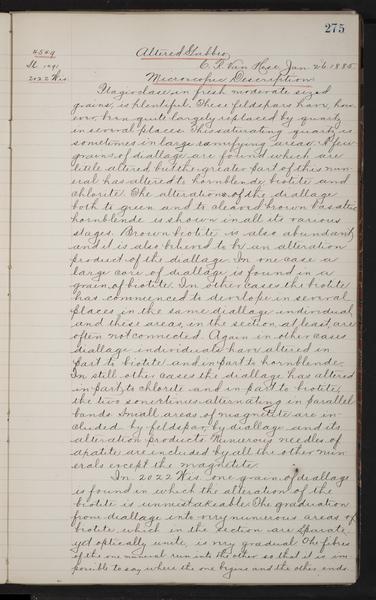 275
4549
Altered Gabbro
C. R. Van Hise, Jan. 26 1885
2022 Wis
Microscopic Description
Plagioclase in fresh moderate sized
grains, is plentiful. These feldspars have, how-
ever, been quite largely replaced by quartz
in several places. This saturating quartz is
sometimes in large ramifying areas. A few
grains of diallage are found which are
little altered but the greater part of this min-
eral has altered to hornblende, biotite and
chlorite. The alterations of the diallage
both to green and to cleaved brown basaltic
hornblende is shown in all its various
stages. Brown biotite is also abundant
and it is also believed to be an alteration
product of the diallage. In one case a
large core of diallage is found in a
grain of biotite. In other cases the biotite
has commenced to develope in several
places in the same diallage individual
and these areas, in the section, at least, are
often not connected. Again in other cases
diallage individuals have altered in
part to biotite and in part to hornblende.
In still other cases the diallage has altered
in part to chlorite and in part to biotite,
the two sometimes alternating in parallel
bands. Small areas of magnetite are in-
cluded by feldspar, by diallage and its
alteration products. Numerous needles of
apatite are included by all the other min-
erals except the magnetite.
In 2022 Wis. one grain of diallage
is found in which the alteration of the
biotite is unmistakeable. The graduation
from diallage into very numerous areas of
biotite which in the section are separate,
yet optically unite, is very gradual. The fibres
of the one mineral run into the other so that it is im-
possible to say where the one begins and the other ends.